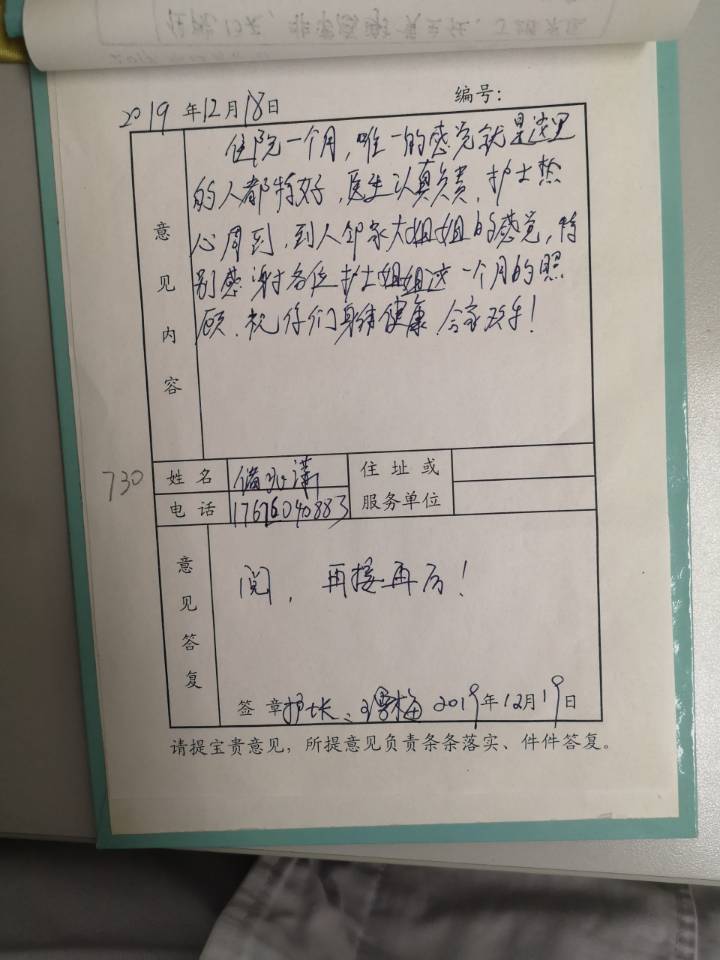 2019年12月18日 编号:
住院一个月,唯一的感觉就是这里
的人都特好,医生认真负责,护士热
心周到,到人邻家大姐姐的感觉,特
别感谢各位护士姐姐这一个月的照
顾,祝你们身体健康,合家欢乐!
意见内容
730
姓名
住址或
服务单位
电话 17616040883
意见答复
阅,再接再厉!
签章 护士长: 2019年12月19日
请提宝贵意见,所提意见负责条条落实、件件答复。